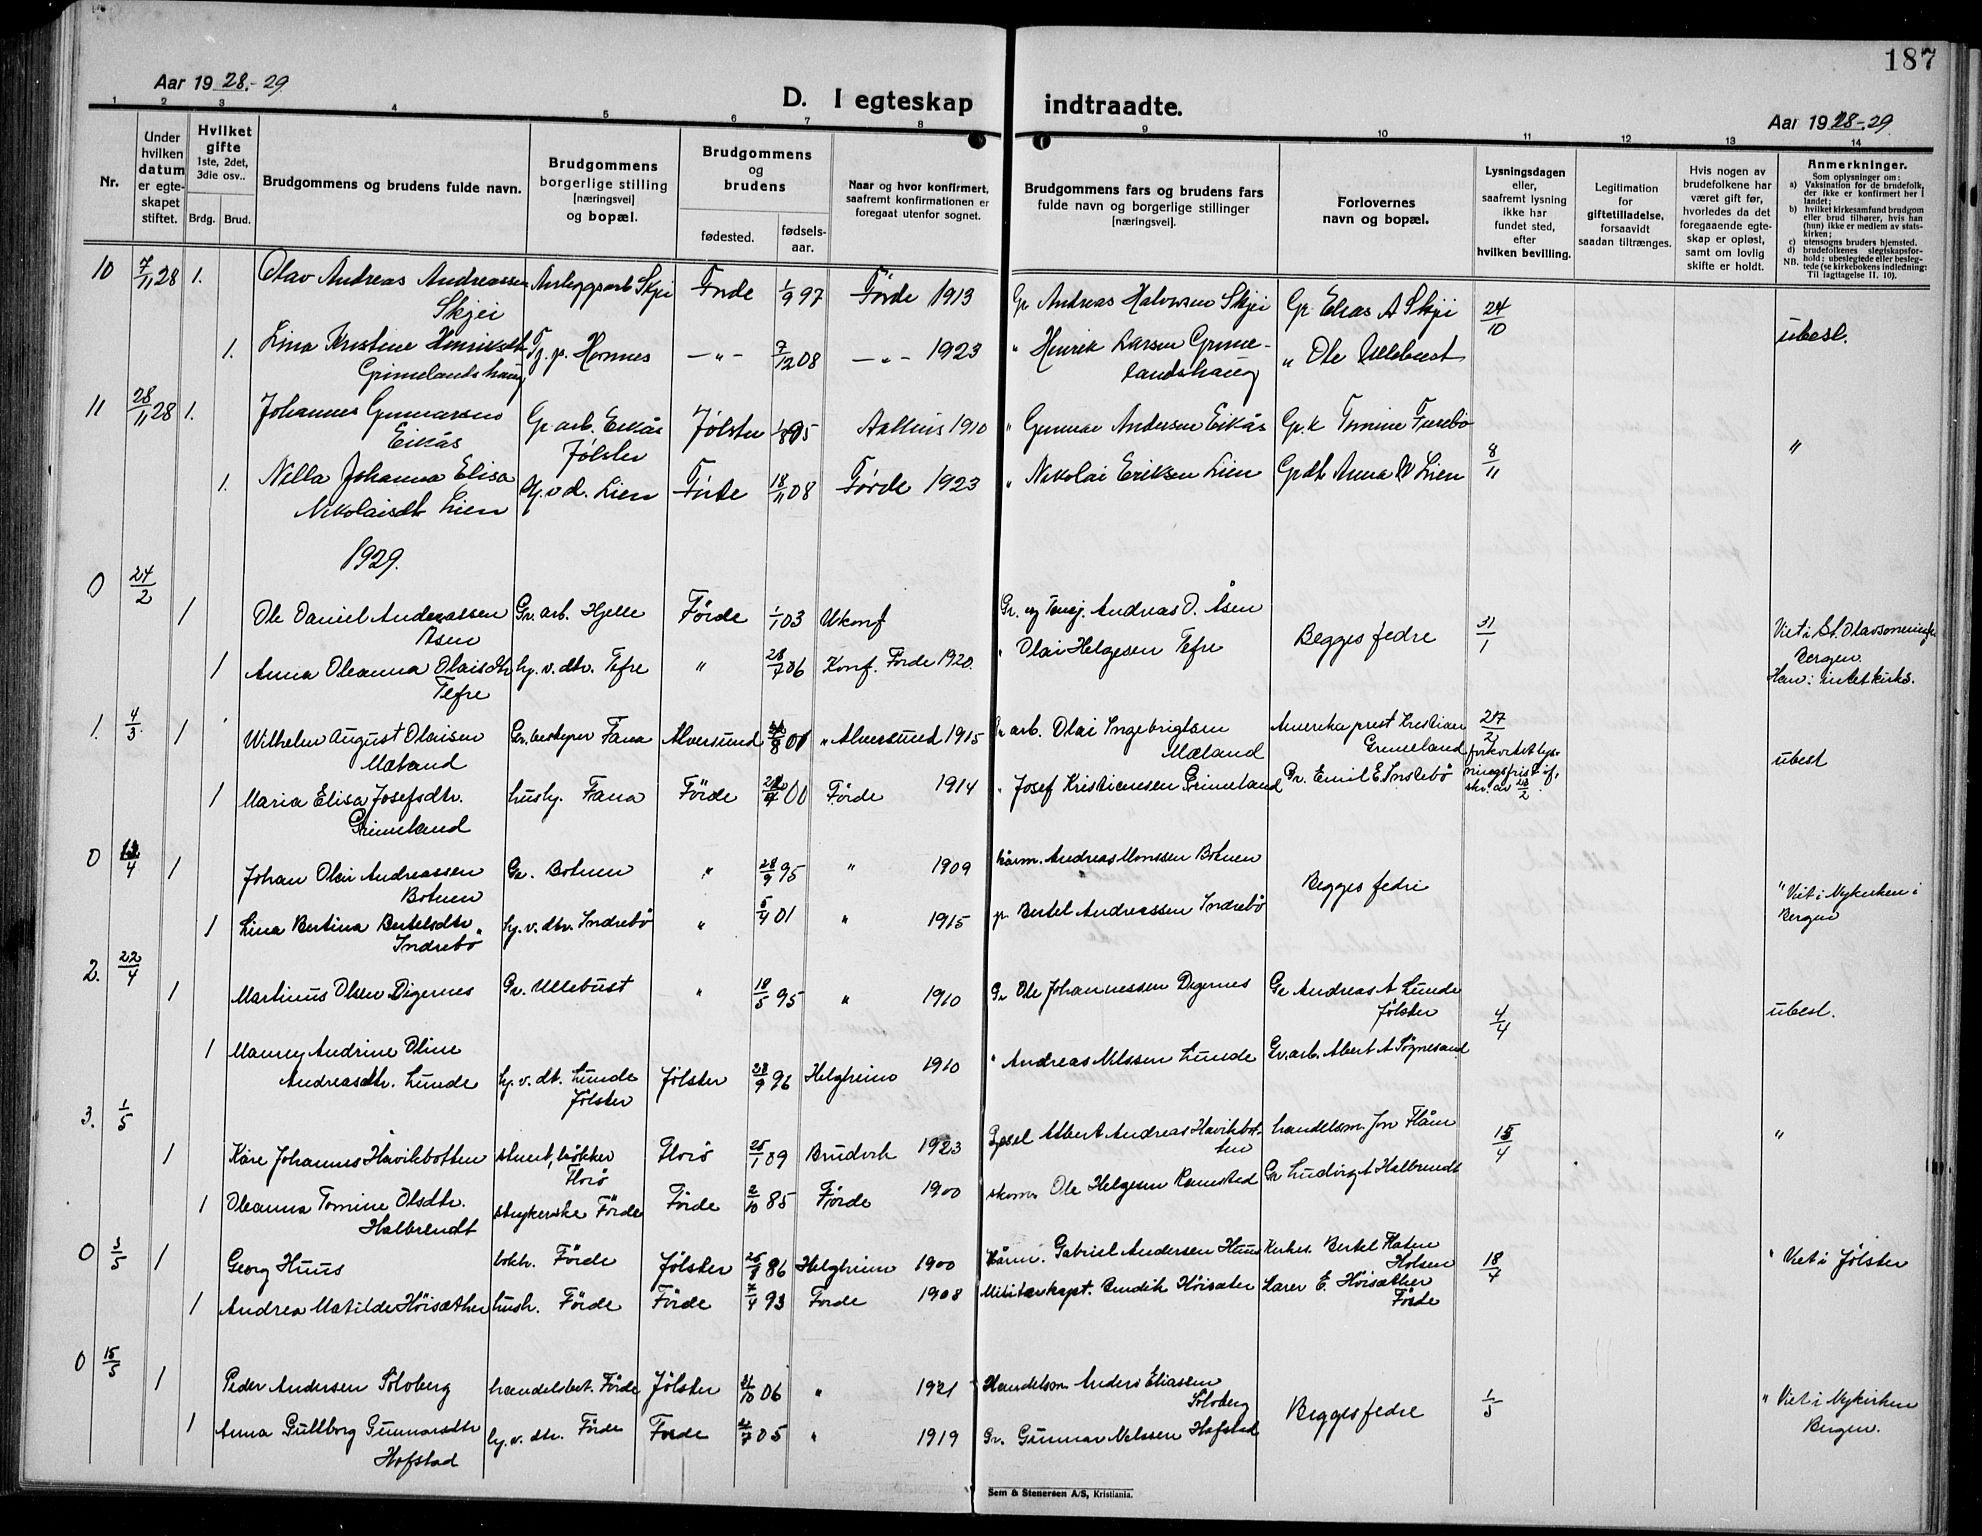 187
Aar 1928-29
D. I egteskap indtraadte.
Aar 1928-29
1 2 3 4 5 6 7 8 9 10 11 12 13 14
Nr.
Under hvilken datum er egteskapet stiftet.
Hvilket gifte 1ste, 2det, 3die osv..
Brdg. Brud.
Brudgommens og brudens fulde navn.
Brudgommens borgerlige stilling [næringsvei] og bopæl.
Brudgommens og brudens
fødested. fødselsaar.
Naar og hvor konfirmert, saafremt konfirmationen er foregaat utenfor sognet.
Brudgommens fars og brudens fars fulde navn og borgerlige stillinger [næringsvei].
Forlovernes navn og bopæl.
Lysningsdagen eller, saafremt lysning ikke har fundet sted, efter hvilken bevilling.
Legitimation for giftetilladelse, forsaavidt saadan tiltrænges.
Hvis nogen av brudefolkene har været gift før, hvorledes da det foregaaende egteskap er opløst, samt om lovlig skifte er holdt.
Anmerkninger.
Som oplysninger om:
a) Vaksination for de brudefolk, der ikke er konfirmert her i landet;
b) hvilket kirkesamfund brudgom eller brud tilhører, hvis han (hun) ikke er medlem av statskirken;
c) utensogns bruders hjemsted.
d) brudefolkenes slegtskapsforhold; ubeslegtede eller beslegtede (se kirkebokens indledning:
NB. Til iagttagelse II, 10).
10 7/11 28 1. Olav Andreas Andreassen Skjei Anleggsarb Skjei Förde 1/9 97 Förde 1913 Gr Andreas Halvorsen Skjei Gr. Elias A Skjei 24/10
1. Lina Kristine Henriksdt Grimelandshaug Tj. p. Hornes -"- 7/12 08 -"- 1923 " Henrik Larsen Grimelandshaug " Ole Ullebust ubesl.
11 28/11 28 1. Johannes Gunnarsen Eikås Gr arb. Eikås Jølster Jølster 1/8 95 Aalhus 1910 " Gunnar Andersen Eikås Gr.k Tomine Furebø 8/11 "
1. Nella Johanna Elisa Nikolaisdt Lien Hj.v.d. Lien Förde 18/11 08 Førde 1923 " Nikolai Eriksen Lien Gr dt Anna N Lien
1929.
0 24/2 1 Ole Daniel Andreassen Åsen Gr. arb. Hjelle Förde 1/1 03 Ukonf Gr. og Tømj. Andreas O. Åsen Begges fedre 31/1 Viet i St. Olavsmenigh. Bergen.
1 Anna Oleanna Olaisdtr Tefre hj. v. dtr. Tefre " 28/7 06 Konf. Förde 1920. " Olai Helgesen Tefre Han: intet kirks.
1. 4/3 1 Wilhelm August Olaisen Mæland Gr. bestyrer Fana Alversund 8 01 " Alversund 1915 Gr arb. Olai Ingebrigtsen Mæland Amerika prest Kristian Grimeland 27/2 forkortet lysningsfrist ubesl
1 Maria Elisa Josefsdtr. Grimeland hushj. Fana Förde 00 Förde 1914 " Josef Kristiansen Grimeland Gr. Emil E. Instebö
0 4 1 Johan Olai Andreassen Botnen Gr. Botnen " 28/9 95 " 1909 Kårm. Andreas Monssen Botnen Begges fedre " Viet i Nykirken i Bergen
1 Lina Bertina Bertelsdtr. Indrebö hj. v. dtr. Indrebö " 5/4 01 " 1915 gr Bertel Andreassen Indrebö
2. 22/4 1 Martinus Olsen Digernes Gr. Ullebust " 18/5 95 " 1910 Gr Ole Johannessen Digernes Gr Andreas A Lunde Jølster 4/4 ubesl.
1 Maurey Andrine Oline Andreasdtr. Lunde hj. v. dt. Lunde Jølster Jølster 28/9 96 Helgheim 1910 " Andreas Nilssen Lunde Gr. arb. Albert A Sögnesand
3. 1/5 1 Kåre Johannes Havikbotten stuert, bökker Florö Florö 25/1 09 Brudvik 1923 Albert Andreas Havikbotten handelsm Jon Flåm 15/4 "
1 Oleanna Tomine Olsdtr. Halbrendt strykerske Förde Förde 2/10 85 Förde 1900 skom. Ole Helgesen Ramstad Gr Ludvig A Halbrendt
0 3/5 1 Georg Huus bokh. Förde Jølster 25/8 86 Helgheim 1900 Kårm. Gabriel Andersen Huus Kirkes. Bertel Flaten Holsen 18/4 " Viet i Jølster
1 Andrea Matilde Höisæther hush. Förde Förde 7/4 93 Förde 1908 Militærkapt. Bendik Höisæter Lærer E. Höisæther Förde
0 15/5 1 Peder Andersen Solvberg handelsbet. Förde Jølster 21/10 06 " 1921 Handelsm Anders Eliassen Solvberg Begges fedre 1/5 " Viet i Nykirken Bergen.
1 Anna Gullborg Gunnarsdtr Hofstad hj. v. dtr. Förde Förde 7 05 " 1919 Gr. Gunnar Nilssen Hofstad
Sem & Stenersen A/S, Kristiania.